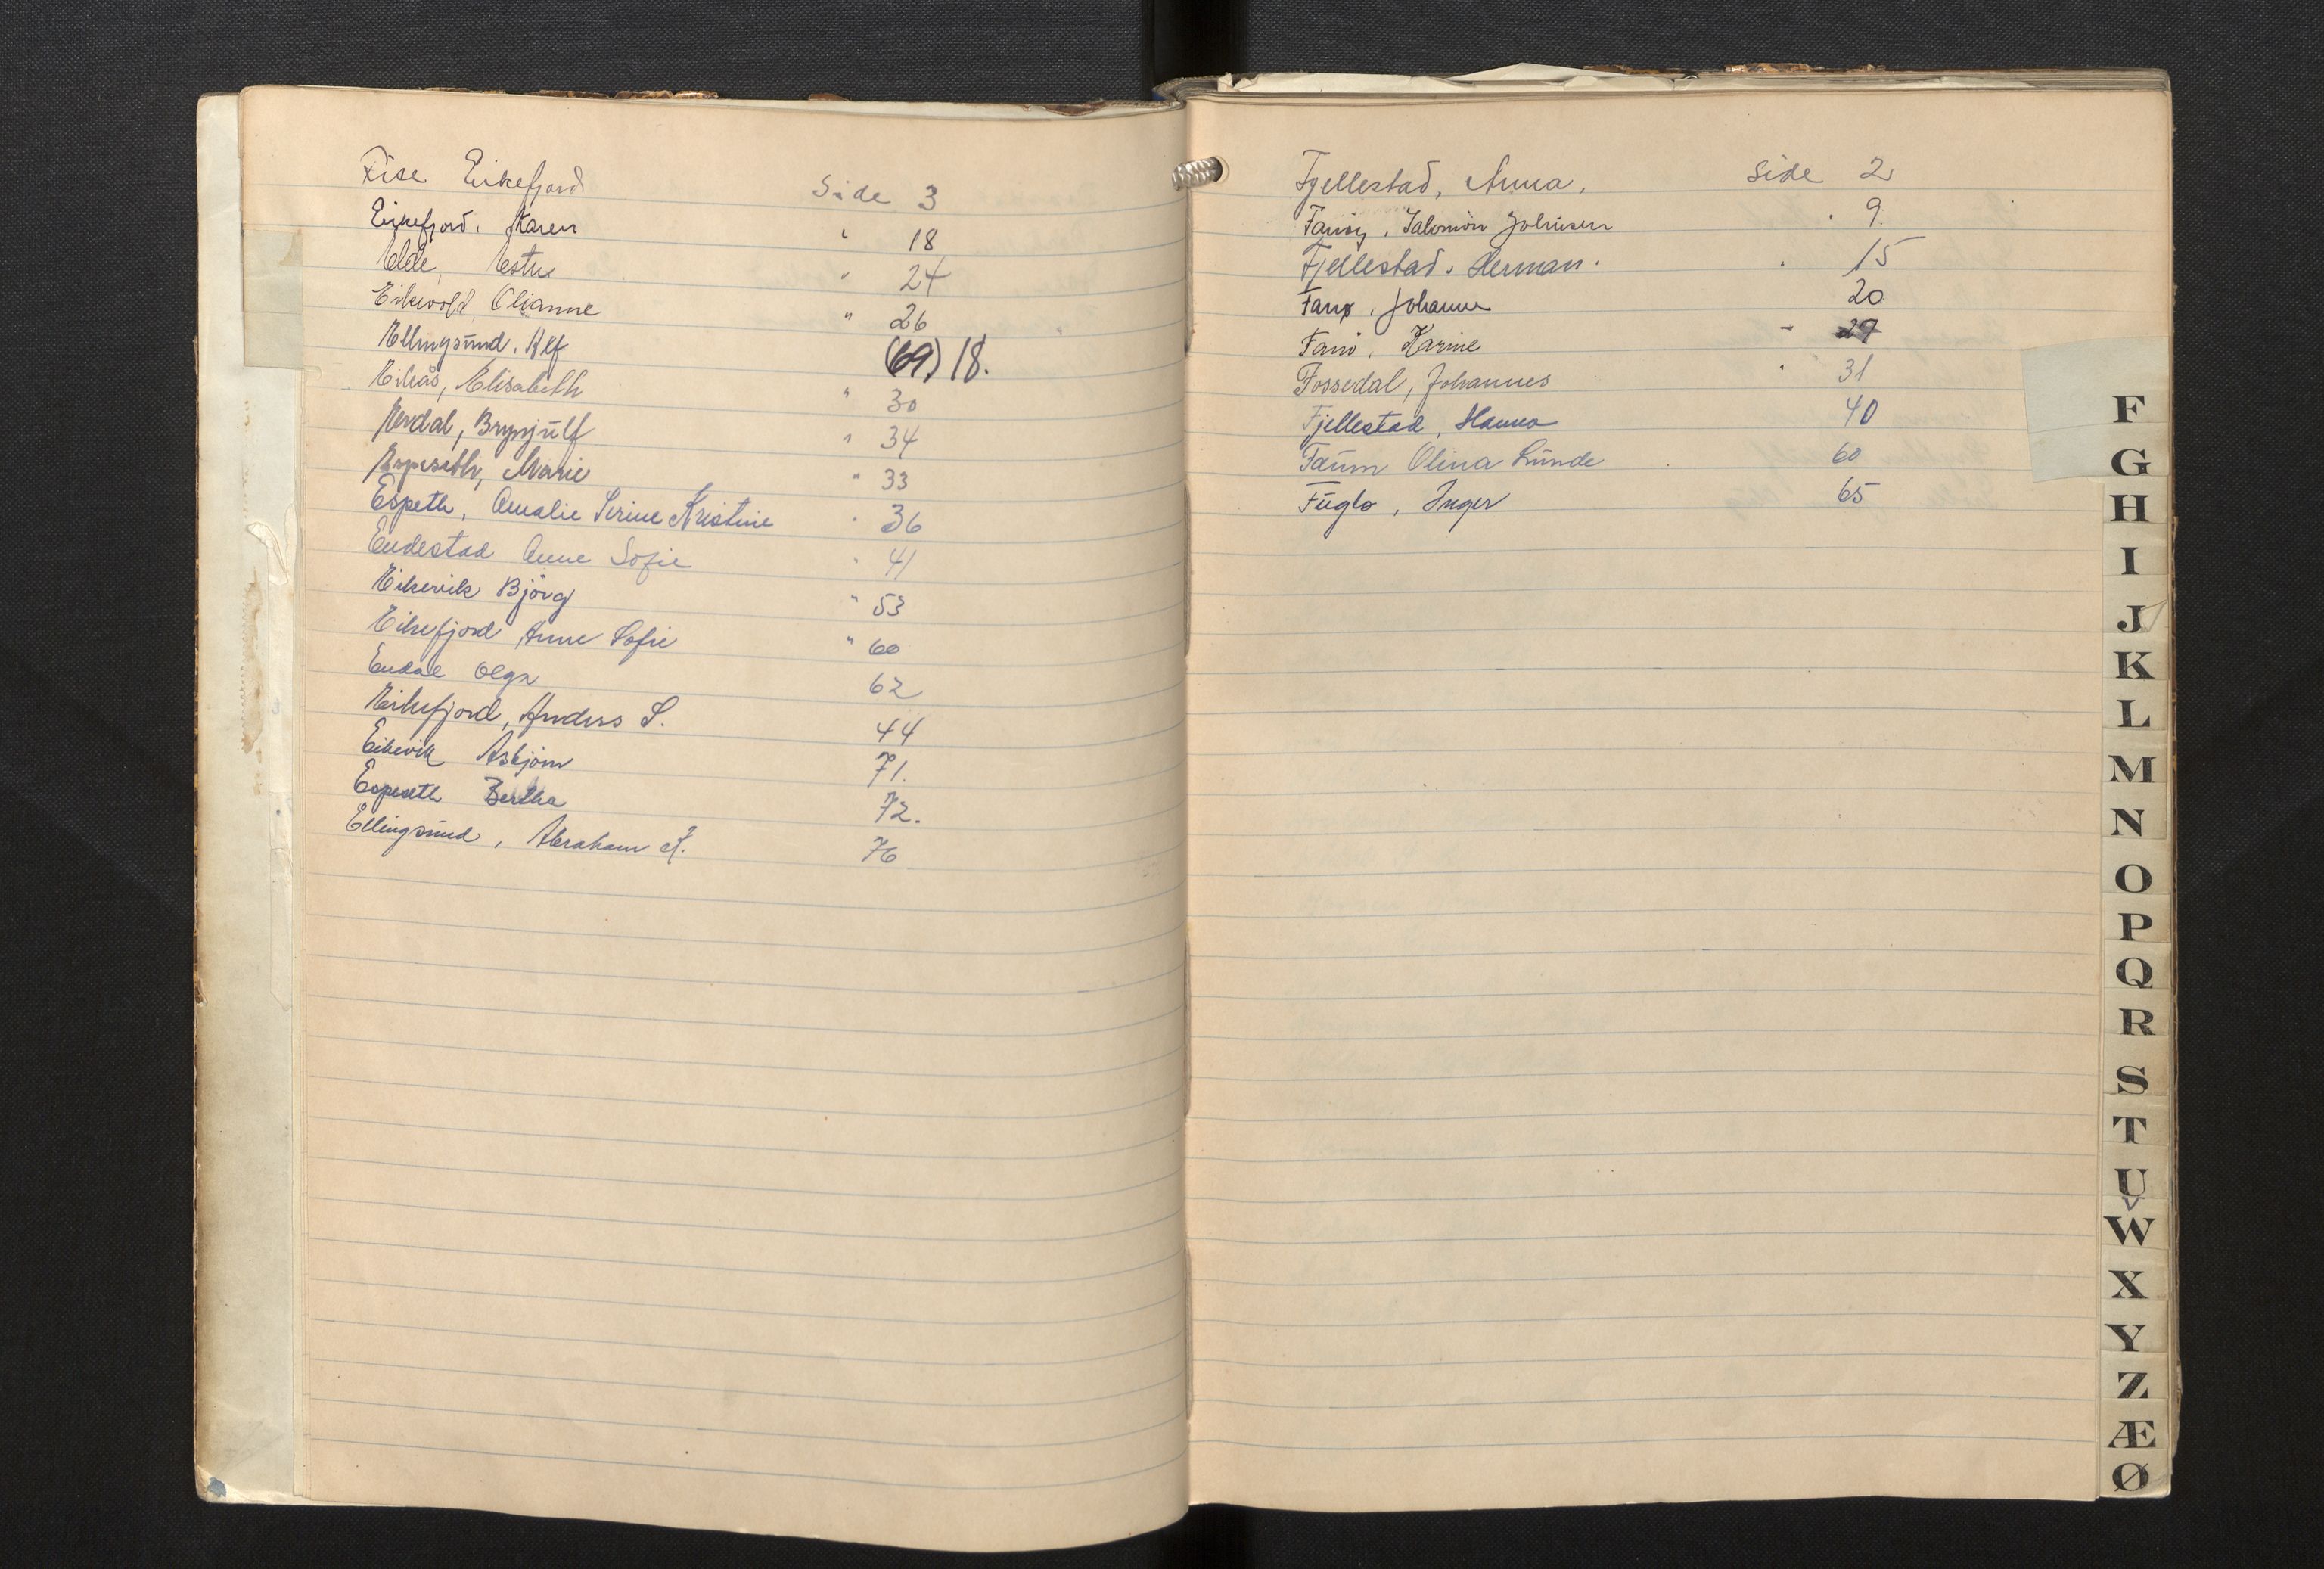 Lise Eikefjord Side 3
Eikefjord, Karen " 18
Elde, " 24
Eikevold Olianne " 26
Ellingsund, Alf (69) 18.
Eikås, Elisabeth " 30
Erdal, Brynjulf " 34
Espeseth, Marie " 33
Espeth, Amalie Serine Kristine " 36
Endestad Anne Sofie " 41
Eikevik Bjørg " 53
Eikefjord Anne Sofie " 60
Endal Olga 62
Eikefjord, Anders S. 44
Eikevik Asbjörn 71.
Espeseth Bertha 72.
Ellingsund, Abraham A. 76
Fjellestad, Anna. Side 2
Fanöy, Salomon Johnsen " 9
Fjellestad, Herman. " 15
Fanø, Johanne 20
Fanö, Karine - 29
Fossedal, Johannes " 31
Fjellestad, Hanna 40
Olina Lunde 60
Fuglø, Inger 65
F
G
H
I
J
K
L
M
N
O
P
Q
R
S
T
U
V
W
X
Y
Z
Æ
Ø